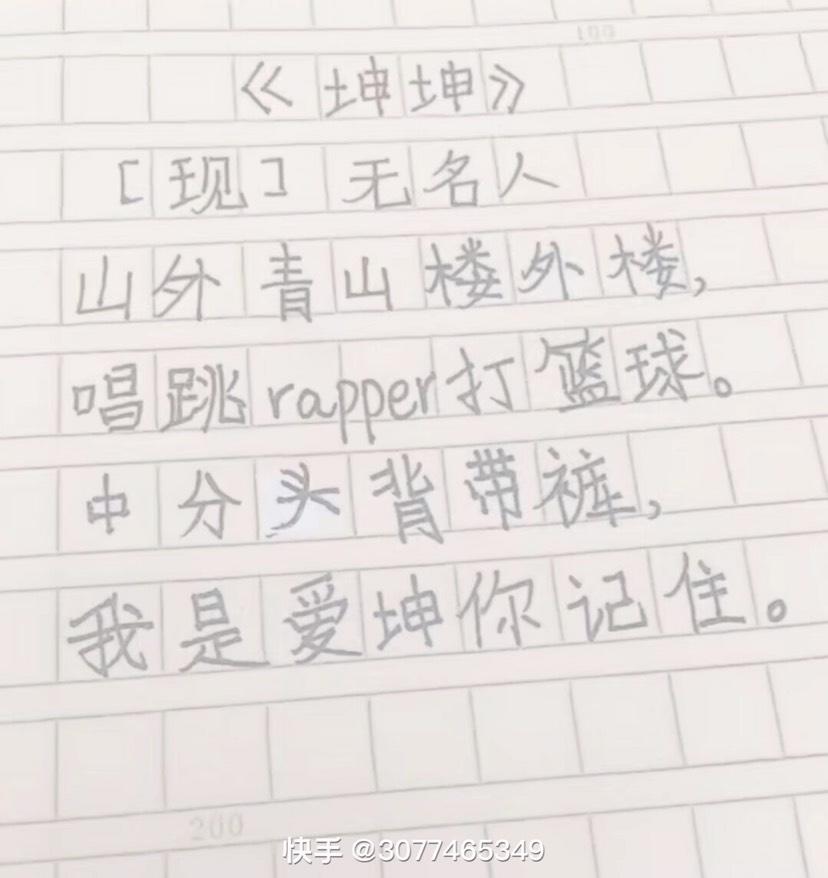 100
《坤坤》
[现]无名人
山外青山楼外楼,
唱跳rapper打篮球。
中分头背带裤,
我是爱坤你记住。
200
快手 @3077465349